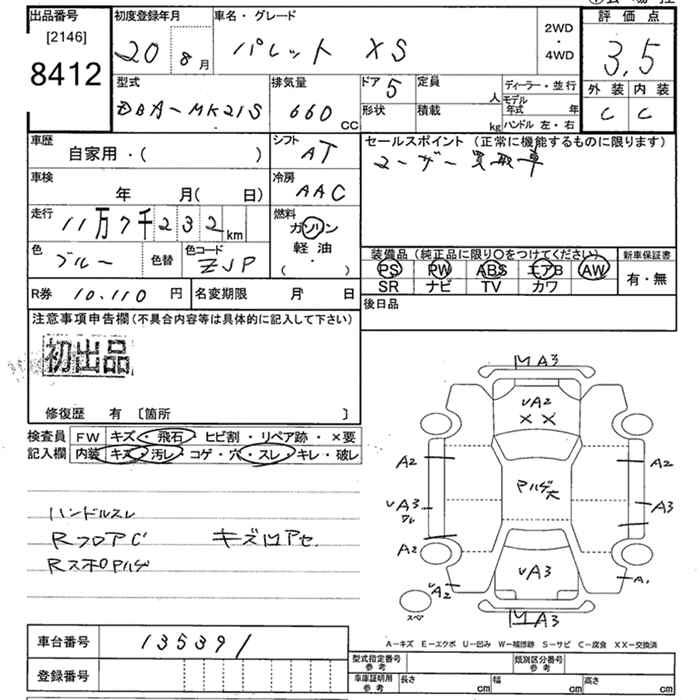 出品番号
[2146]
8412
初度登録年月
20 8月
車名・グレード
パレット XS
2WD
・
4WD
評価点
3.5
外装 内装
C C
型式
DBA-MK21S
排気量
660 CC
ドア 5
形状
定員 人
積載 kg
ディーラー・並行
モデル年式 年
ハンドル 左・右
車歴
自家用・( )
シフト
AT
車検
年 月( 日)
冷房
AAC
走行
11万7千232km
燃料
ガソリン
軽油
( ・ )
色
ブルー
色替
色コード
ZJP
R券 10,110 円
名変期限 月 日
セールスポイント (正常に機能するものに限ります)
ユーザー買取車
装備品 (純正品に限り〇をつけてください)
PS PW ABS エアB AW
SR ナビ TV カワ
新車保証書
有・無
後日品
注意事項申告欄(不具合内容等は具体的に記入して下さい)
初出品
修復歴 有 〔箇所 〕
検査員記入欄
FW キズ・飛石・ヒビ割・リペア跡・×要
内装 キズ・汚レ・コゲ・穴・スレ・キレ・破レ
ハンドルスレ
RフロアC キズ凹アセ
RスポPハゲ
M A3
UA2
XX
A2
A2
UA3
ワレ
PハゲX大
A3
A2
UA2
UA3
A1
スペア
M A3
A-キズ E-エクボ U-凹ミ W-補修跡 S-サビ C-腐食 XX-交換済
車台番号 135391
登録番号
型式指定番号
参考
類別区分番号
参考
車庫証明用
参考
長さ cm
幅 cm
高さ cm